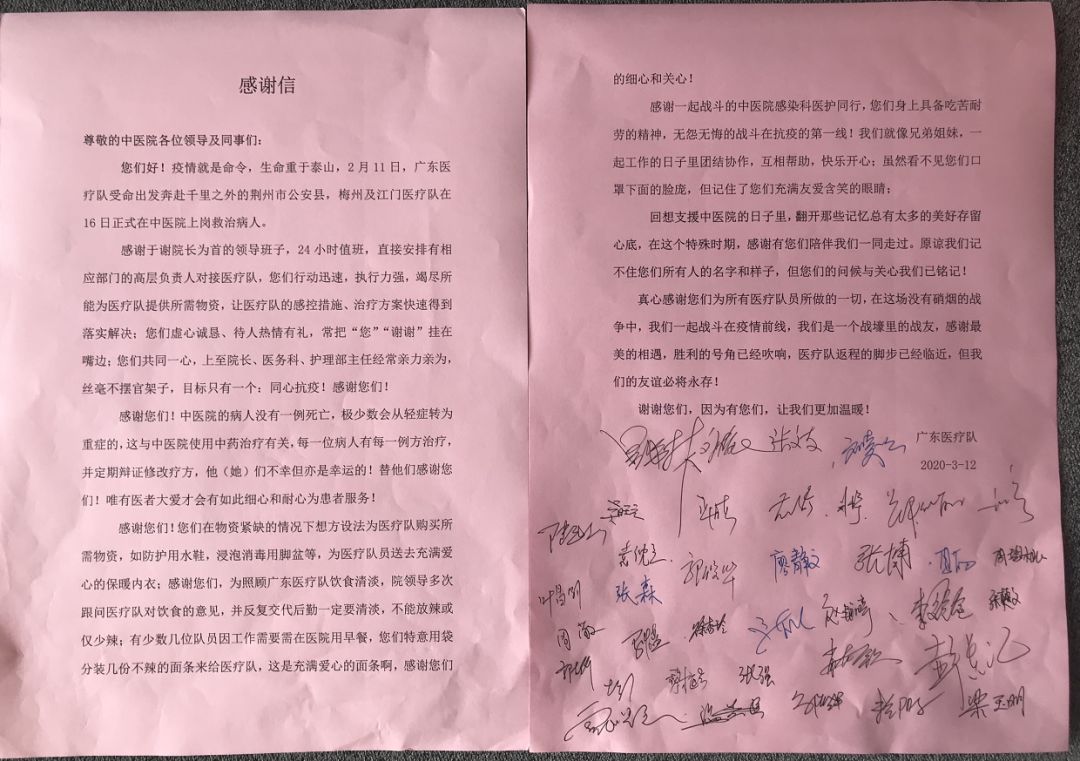 感谢信
尊敬的中医院各位领导及同事们：
您们好！疫情就是命令，生命重于泰山，2月11日，广东医
疗队受命出发奔赴千里之外的荆州市公安县，梅州及江门医疗队在
16日正式在中医院上岗救治病人。
感谢于谢院长为首的领导班子，24小时值班，直接安排有相
应部门的高层负责人对接医疗队，您们行动迅速，执行力强，竭尽所
能为医疗队提供所需物资，让医疗队的感控措施、治疗方案快速得到
落实解决；您们虚心诚恳、待人热情有礼，常把“您”“谢谢”挂在
嘴边；您们共同一心，上至院长、医务科、护理部主任经常亲力亲为，
丝毫不摆官架子，目标只有一个：同心抗疫！感谢您们！
感谢您们！中医院的病人没有一例死亡，极少数会从轻症转为
重症的，这与中医院使用中药治疗有关，每一位病人有每一例方治疗，
并定期辩证修改疗方，他（她）们不幸但亦是幸运的！替他们感谢您
们！唯有医者大爱才会有如此细心和耐心为患者服务！
感谢您们！您们在物资紧缺的情况下想方设法为医疗队购买所
需物资，如防护用水鞋，浸泡消毒用脚盆等，为医疗队员送去充满爱
心的保暖内衣；感谢您们，为照顾广东医疗队饮食清淡，院领导多次
跟问医疗队对饮食的意见，并反复交代后勤一定要清淡，不能放辣或
仅少辣；有少数几位队员因工作需要需在医院用早餐，您们特意用袋
分装几份不辣的面条来给医疗队，这是充满爱心的面条啊，感谢您们
的细心和关心！
感谢一起战斗的中医院感染科医护同行，您们身上具备吃苦耐
劳的精神，无怨无悔的战斗在抗疫的第一线！我们就像兄弟姐妹，一
起工作的日子里团结协作，互相帮助，快乐开心；虽然看不见您们口
罩下面的脸庞，但记住了您们充满友爱含笑的眼睛；
回想支援中医院的日子里，翻开那些记忆总有太多的美好存留
心底，在这个特殊时期，感谢有您们陪伴我们一同走过。原谅我们记
不住您们所有人的名字和样子，但您们的问候与关心我们已铭记！
真心感谢您们为所有医疗队员所做的一切，在这场没有硝烟的战
争中，我们一起战斗在疫情前线，我们是一个战壕里的战友，感谢最
美的相遇，胜利的号角已经吹响，医疗队返程的脚步已经临近，但我
们的友谊必将永存！
谢谢您们，因为有您们，让我们更加温暖！
广东医疗队
2020-3-12
廖静文
叶昌明 张森
周敏
张强
梁玉明